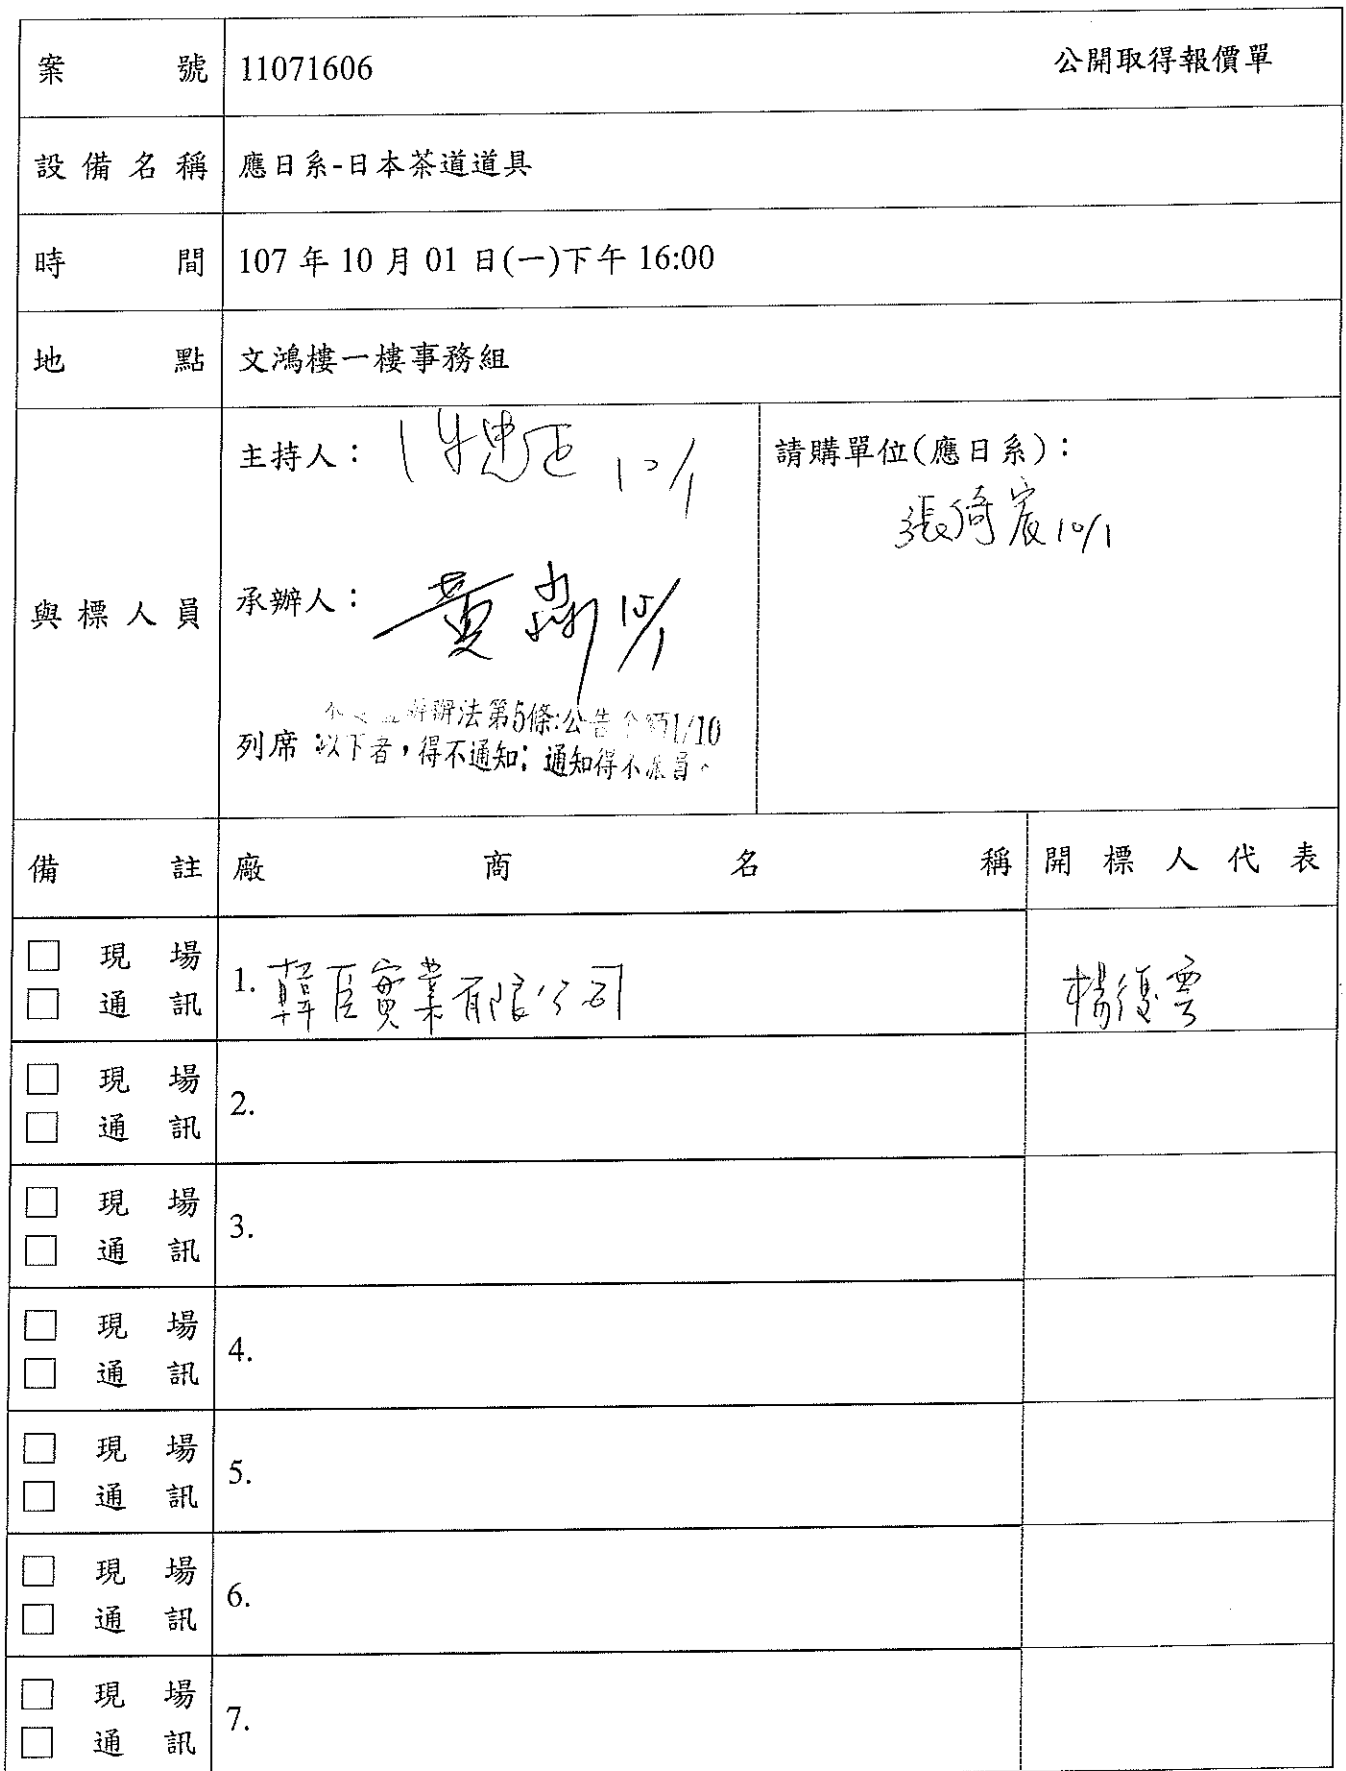 案號 11071606 公開取得報價單
設備名稱 應日系-日本茶道道具
時間 107 年 10 月 01 日(一)下午 16:00
地點 文鴻樓一樓事務組
與標人員
主持人： 10/1
請購單位(應日系)：
張倚宸 10/1
承辦人： 黃 10/1
辦法第5條:公告金額1/10
列席：以下者，得不通知；通知得不派員。
備註 廠商名稱 開標人代表
□ 現場
□ 通訊
1. 韓臣實業有限公司 楊復雲
□ 現場
□ 通訊
2.
□ 現場
□ 通訊
3.
□ 現場
□ 通訊
4.
□ 現場
□ 通訊
5.
□ 現場
□ 通訊
6.
□ 現場
□ 通訊
7.